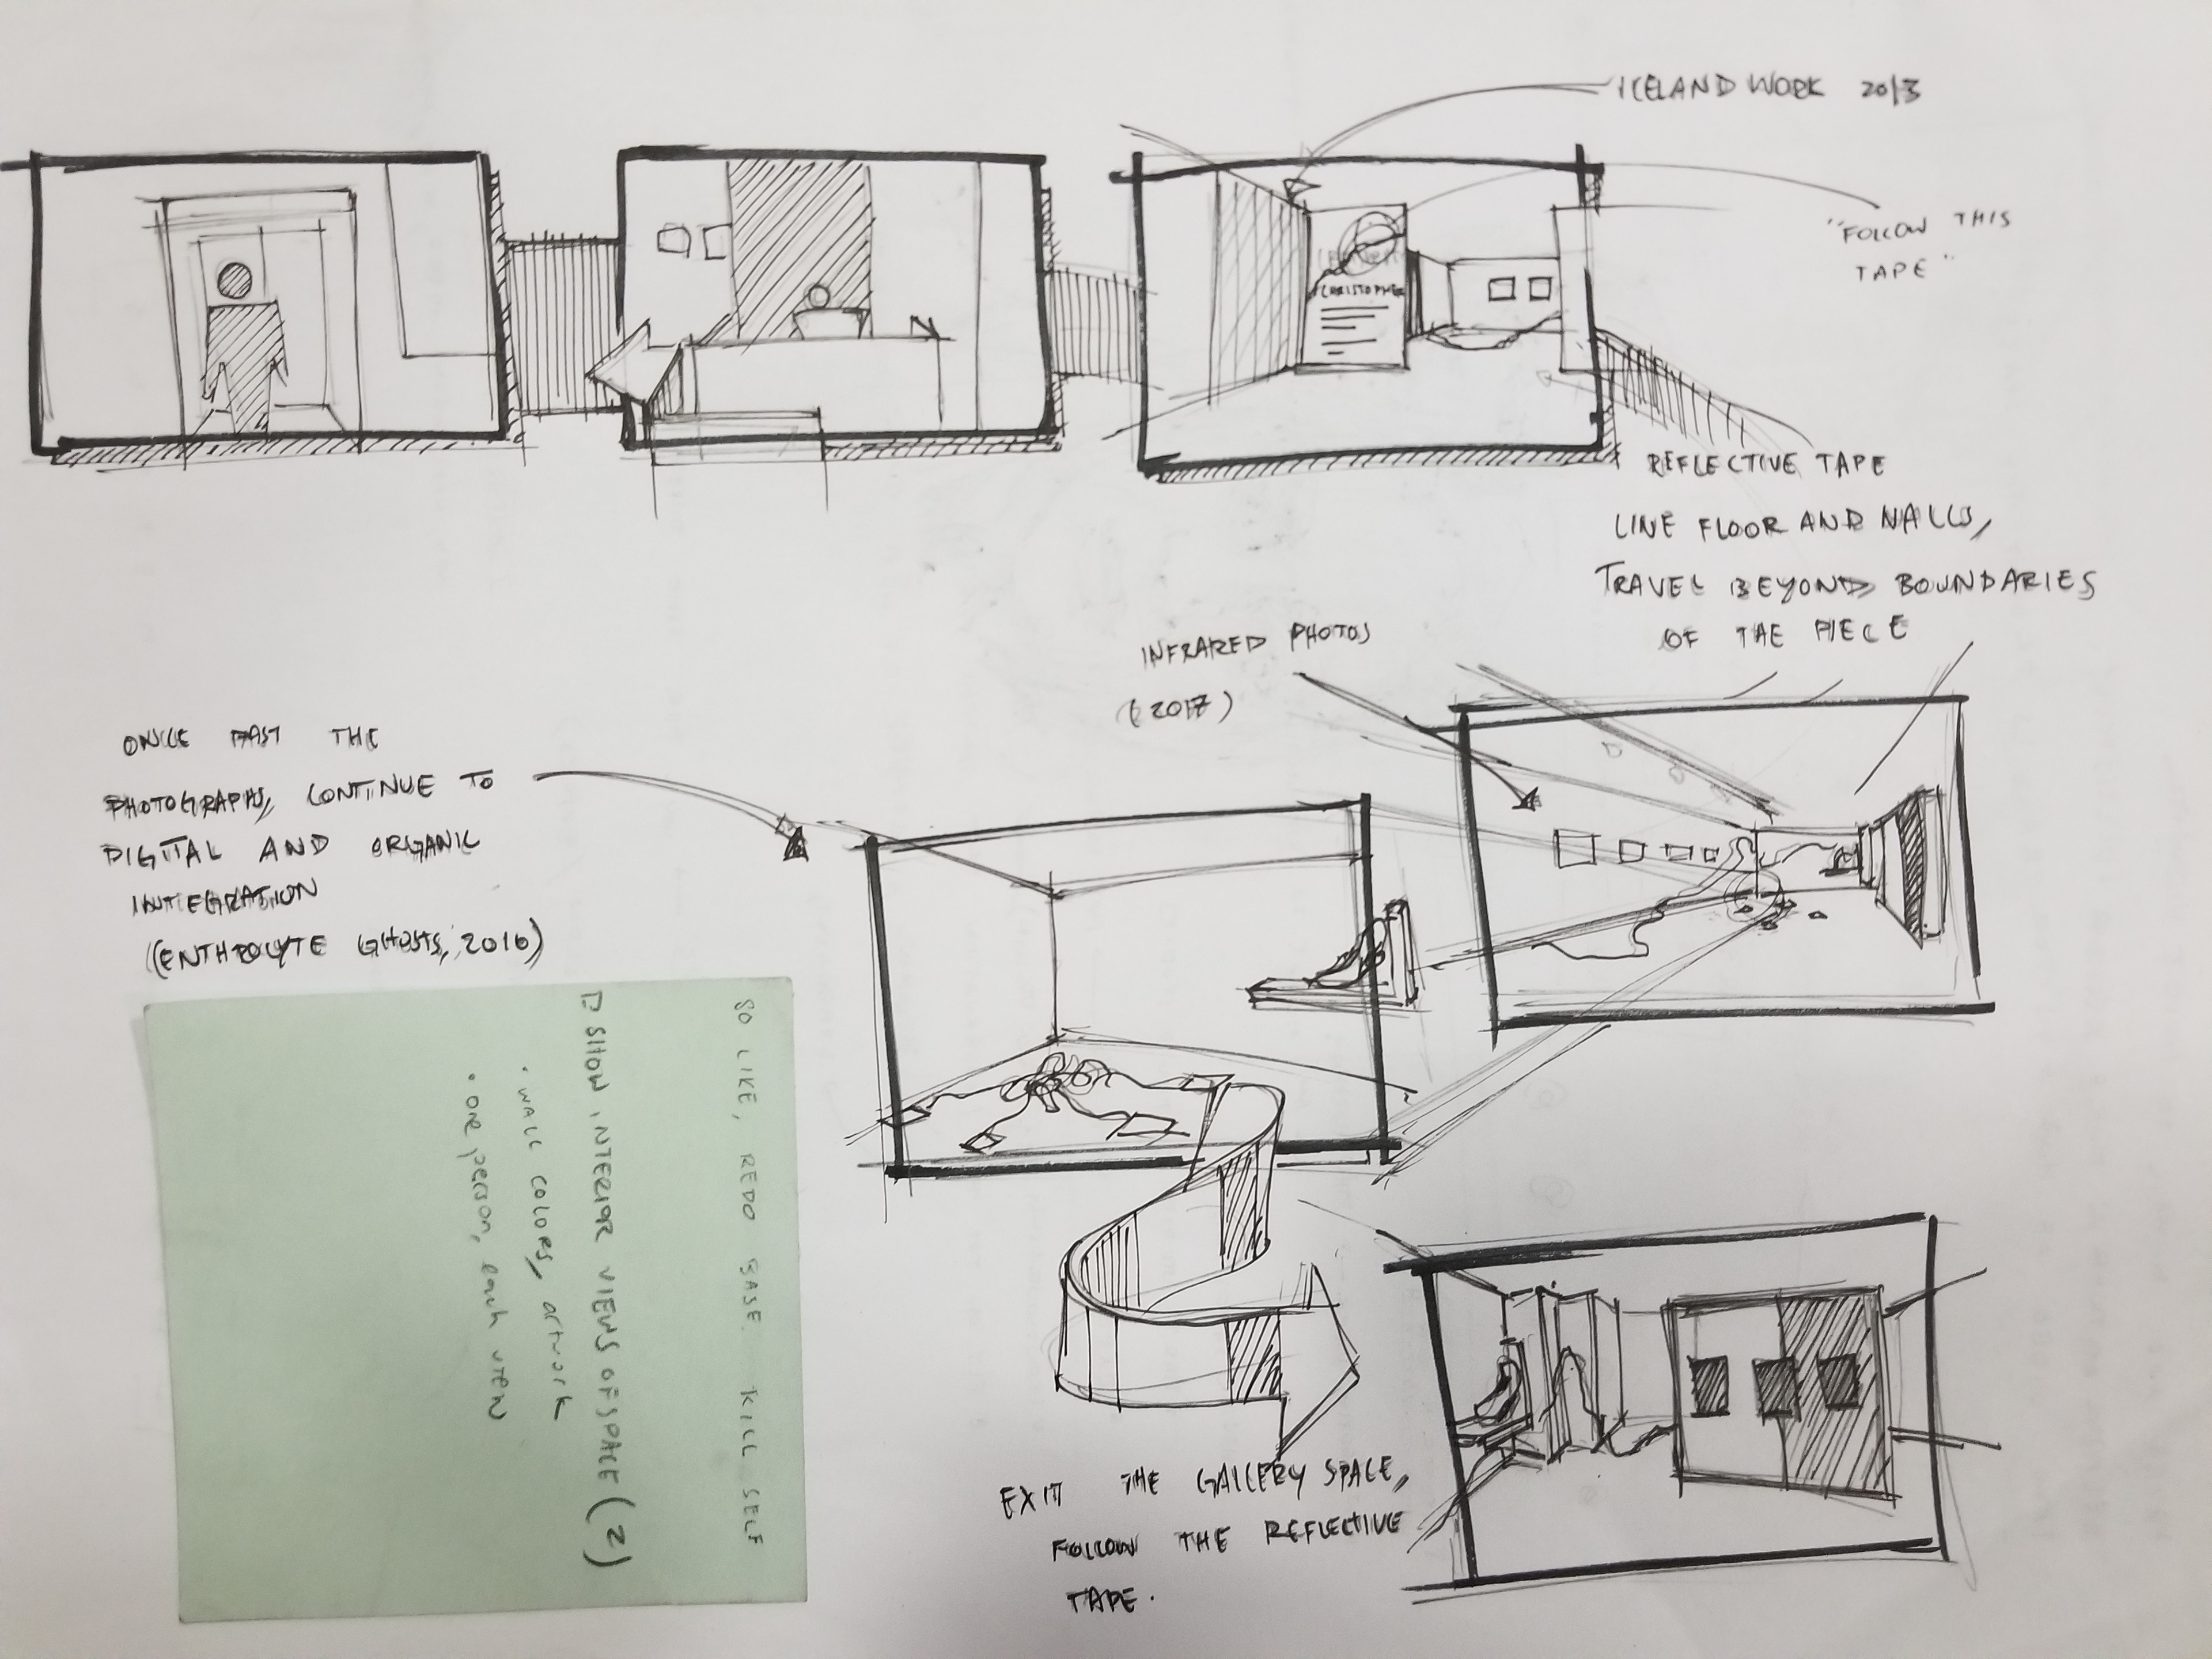 ICELAND WORK 2013
"FOLLOW THIS
TAPE"
CHRISTOPHER
REFLECTIVE TAPE
LINE FLOOR AND WALLS,
TRAVEL BEYOND BOUNDARIES
OF THE PIECE
INFRARED PHOTOS
(2017)
ONCE PAST THE
PHOTOGRAPHS, CONTINUE TO
DIGITAL AND ORGANIC
INTEGRATION
(ENTHPOLYTE GHOSTS, 2016)
SO LIKE, REDO BASE. KILL SELF
SHOW INTERIOR VIEWS OF SPACE (2)
• WALL COLORS, artwork
• one person, each view
EXIT THE GALLERY SPACE,
FOLLOW THE REFLECTIVE
TAPE.